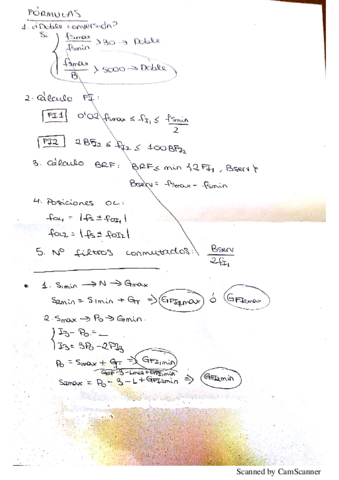 FÓRMULAS
1. ¿Doble conversión?
Si
fsmax / fsmin > 90 → Doble
fsmax / B > 5000 → Doble
2. Cálculo FI:
FI1 0'02 fsmax ≤ fI1 ≤ fsmin / 2
FI2 2BFI2 ≤ fI2 ≤ 100BFI2
3. Cálculo BRF: BRF ≤ min {2FI1, Bserv}
Bserv = fsmax - fsmin
4. Posiciones OL:
foL1 = |fs ± foI1|
foL2 = |fs ± foI2|
5. Nº filtros conmutados: Bserv / 2fI1
1. Simin → N → Gmax
Somin = Simin + GT ⇒ GFI2max ó GFI1max
2. Smax → Po → Gmin
I3 - Po =
I3 = 3Po - 2PI3
Po = Smax + GT ⇒ GFI1min
Somax = Po - 3 - L + GFI2min ⇒ GFI2min
Scanned by CamScanner